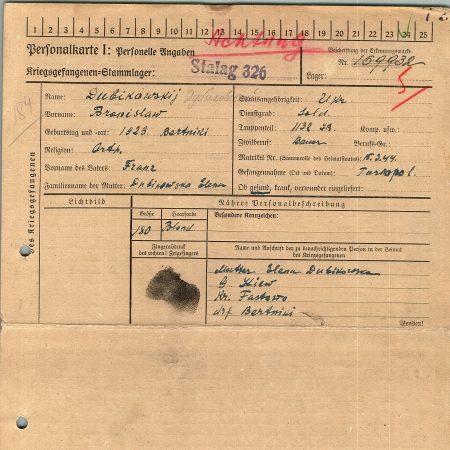 1 2 3 4 5 6 7 8 9 10 11 12 13 14 15 16 17 18 19 20 21 22 23 24 25
Personalkarte I: Personelle Angaben
Achtung
Beschriftung der Erkennungsmarke
Nr. 169932
Kriegsgefangenen-Stammlager:
Stalag 326
Lager:
184
des Kriegsgefangenen
Name: Dubikowskij
Vorname: Bronislaw
Geburtstag und -ort: 1923. Bertniki
Religion: Orth.
Vorname des Vaters: Franz
Familienname der Mutter: Dubikowska Elena
Staatsangehörigkeit: Ukr.
Dienstgrad: Sold.
Truppenteil: 1132 IR Komp. usw.:
Zivilberuf: Bauer Berufs-Gr.:
Matrikel Nr. (Stammrolle des Heimatstaates): K.344.
Gefangennahme (Ort und Datum): Tarnopol.
Ob gesund, krank, verwundet eingeliefert:
Lichtbild
Nähere Personalbeschreibung
Größe
Haarfarbe
Besondere Kennzeichen:
180
Blond
Fingerabdruck
des rechten! Zeigefingers
Name und Anschrift der zu benachrichtigenden Person in der Heimat
des Kriegsgefangenen
Mutter Elena Dubikowska
G. Kiew
Kr. Fastowo
Drf. Bertniki
Wenden!